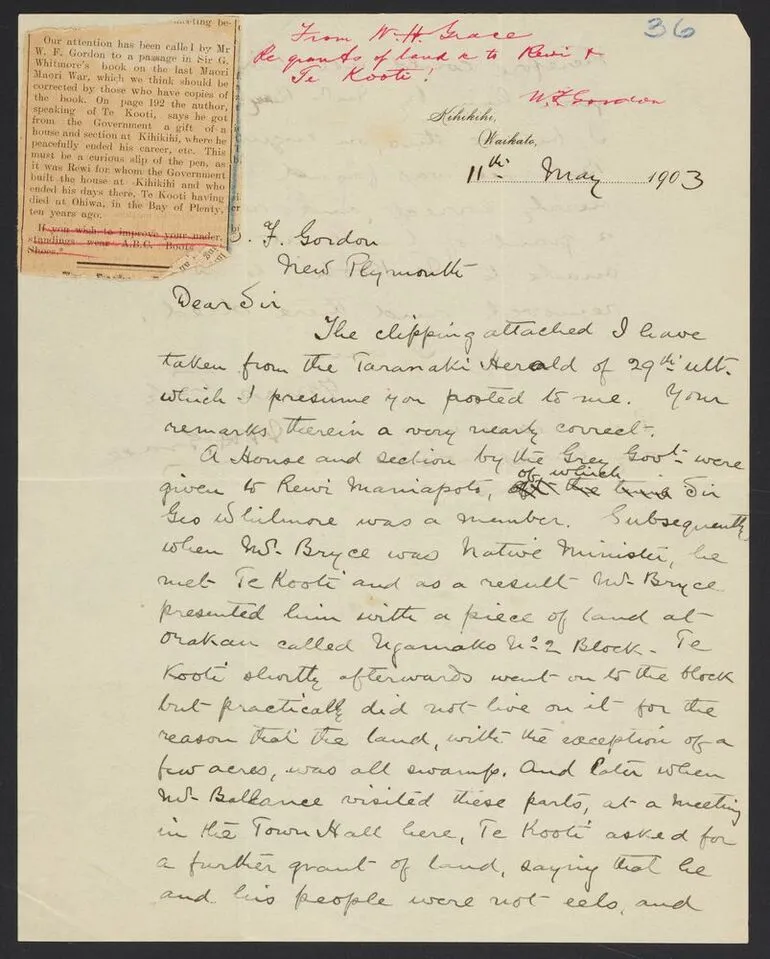 meeting be-
Our attention has been called by Mr
W. F. Gordon to a passage in Sir G.
Whitmore's book on the last Maori
Maori War, which we think should be
corrected by those who have copies of
the book. On page 192 the author,
speaking of Te Kooti, says he got
from the Government a gift of a
house and section at Kihikihi, where he
peacefully ended his career, etc. This
must be a curious slip of the pen, as
it was Rewi for whom the Government
built the house at Kihikihi and who
ended his days there. Te Kooti having
died at Ohiwa, in the Bay of Plenty,
ten years ago.
If you wish to improve your under-
standings wear A.B.C. Boots
Shoes."
From W. H. Grace
Re grants of land to Rewi &
Te Kooti!
W. F. Gordon
36
Kihikihi,
Waikato,
11th May 1903
. F. Gordon
New Plymouth
Dear Sir
The clipping attached I have
taken from the Taranaki Herald of 29th ult.
which I presume you posted to me. Your
remarks therein a very nearly correct.
A House and section by the Grey Govt. were
given to Rewi Maniapoto, of which Sir
Geo Whitmore was a member. Subsequently
when Mr. Bryce was Native Minister, he
met Te Kooti and as a result Mr. Bryce
presented him with a piece of land at
Orakau called Ngamako No 2 Block. Te
Kooti shortly afterwards went on to the block
but practically did not live on it for the
reason that the land, with the exception of a
few acres, was all swamp. And later when
Mr. Ballance visited these parts, at a meeting
in the Town Hall here, Te Kooti asked for
a further grant of land, saying that he
and his people were not eels, and